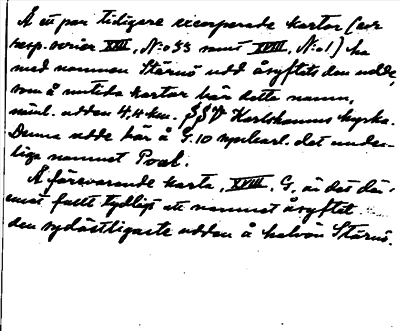 Å ett par tidigare excerperade kartor (se
resp. serier XXII, N:o 33 samt XVIII, N:o 1) ha
med namnen Stärnö udd åsyftets den udde,
som å nutida kartor bär detta namn,
näml. udden 4,4 km. SSV Karlshamns kyrka.
Denna udde bär å G.10 uppenbarl. det under-
liga namnet Poal.
Å förevarande karta, XVIII. G, är det där-
emot fullt tydligt att namnet åsyftet
den sydöstligaste udden å halvön Stärnö.